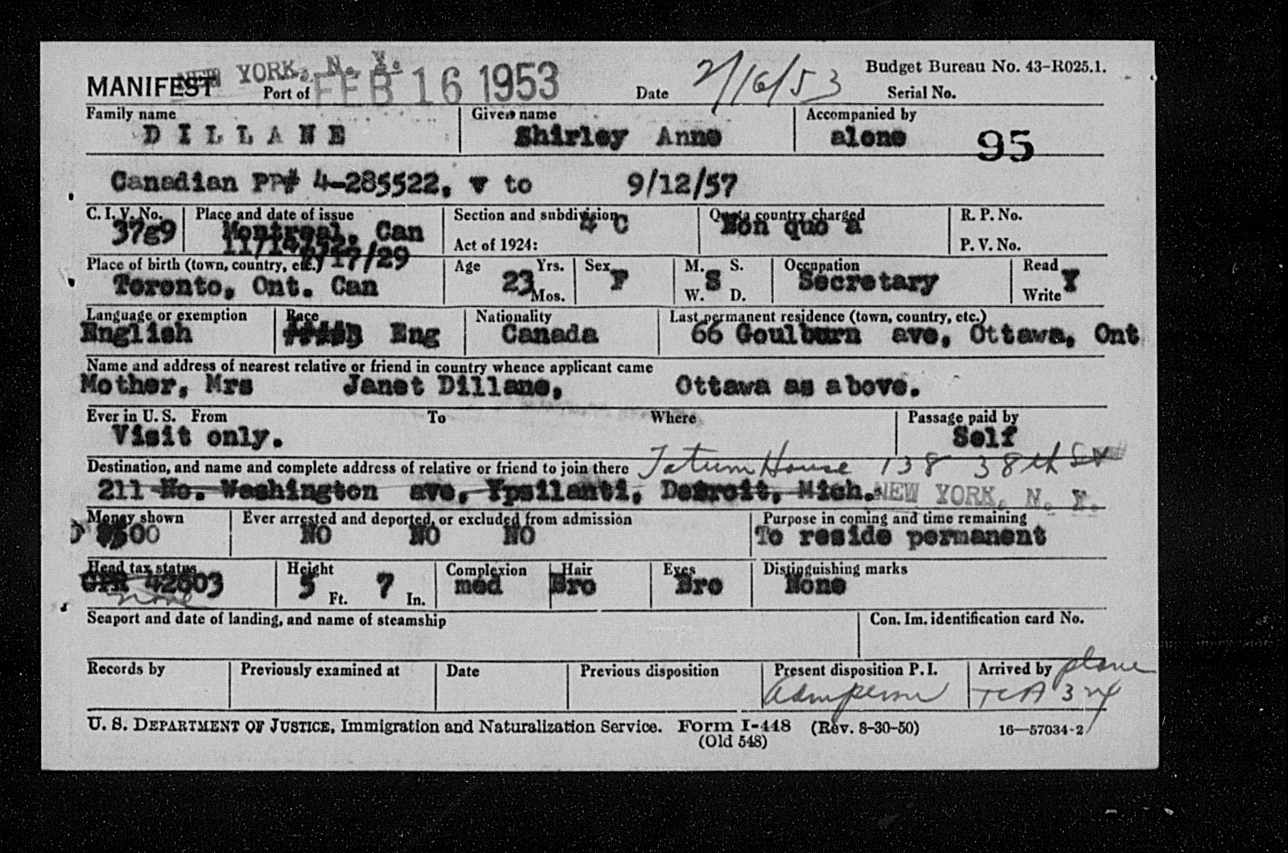 NEW YORK, N. Y.
MANIFEST Port of FEB 16 1953 Date 2/16/53 Budget Bureau No. 43-R025.1.
Serial No.
Family name Given name Accompanied by
DILLANE Shirley Anne alone 95
Canadian PP# 4-285522, v to 9/12/57
C. I. V. No. Place and date of issue Section and subdivision Quota country charged R. P. No.
37g9 Montreal, Can 4 C Non quo a
Act of 1924: P. V. No.
Place of birth (town, country, etc.) 7/17/29 Age Yrs. Sex M. S. Occupation Read
Toronto, Ont. Can 23 Mos. F W. S D. Secretary Write Y
Language or exemption Race Nationality Last permanent residence (town, country, etc.)
English Eng Canada 66 Goulburn ave, Ottawa, Ont
Name and address of nearest relative or friend in country whence applicant came
Mother, Mrs Janet Dillane, Ottawa as above.
Ever in U. S. From To Where Passage paid by
Visit only. Self
Destination, and name and complete address of relative or friend to join there Tatum House 138 38th St
211 No. Washington ave, Ypsilanti, Detroit, Mich. NEW YORK, N. Y.
Money shown Ever arrested and deported, or excluded from admission Purpose in coming and time remaining
00 NO NO NO To reside permanent
Head tax status Height Complexion Hair Eyes Distinguishing marks
42603 5 Ft. 7 In. med Bro Bro None
none
Seaport and date of landing, and name of steamship Con. Im. identification card No.
Records by Previously examined at Date Previous disposition Present disposition P. I. Arrived by plane
adm perm TCA 324
U. S. DEPARTMENT OF JUSTICE, Immigration and Naturalization Service. Form I-448 (Rev. 8-30-50) 16—57034-2
(Old 548)